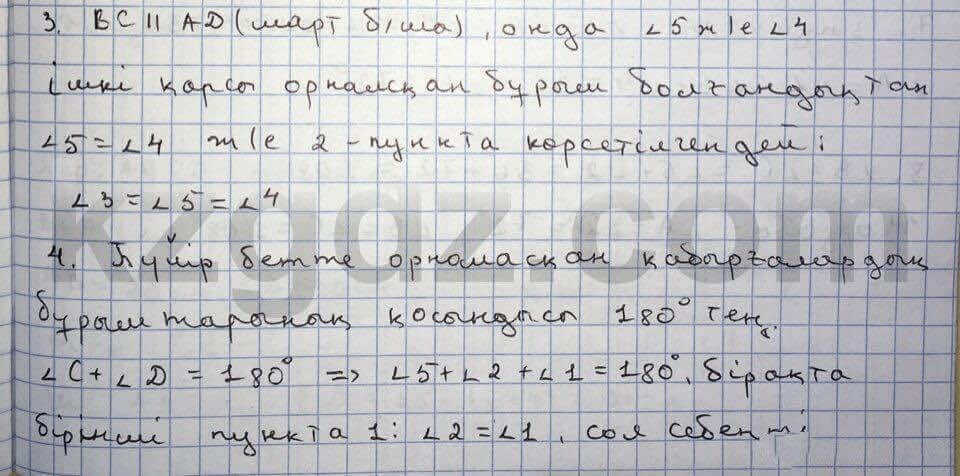 3. BC || AD (шарт б/ша), онда ∠5 ж/е ∠4
ішкі қарсы орналсқан бұрыш болғандықтан
∠5 = ∠4 ж/е 2-пункта көрсетілгендей:
∠3 = ∠5 = ∠4
4. Бүйір бетте орналасқан қабырғалардың
бұрыштарының қосындысы 180° тең.
∠C + ∠D = 180° => ∠5 + ∠2 + ∠1 = 180°, бірақта
бірінші пункта 1: ∠2 = ∠1, сол себепті
kzgdz.com